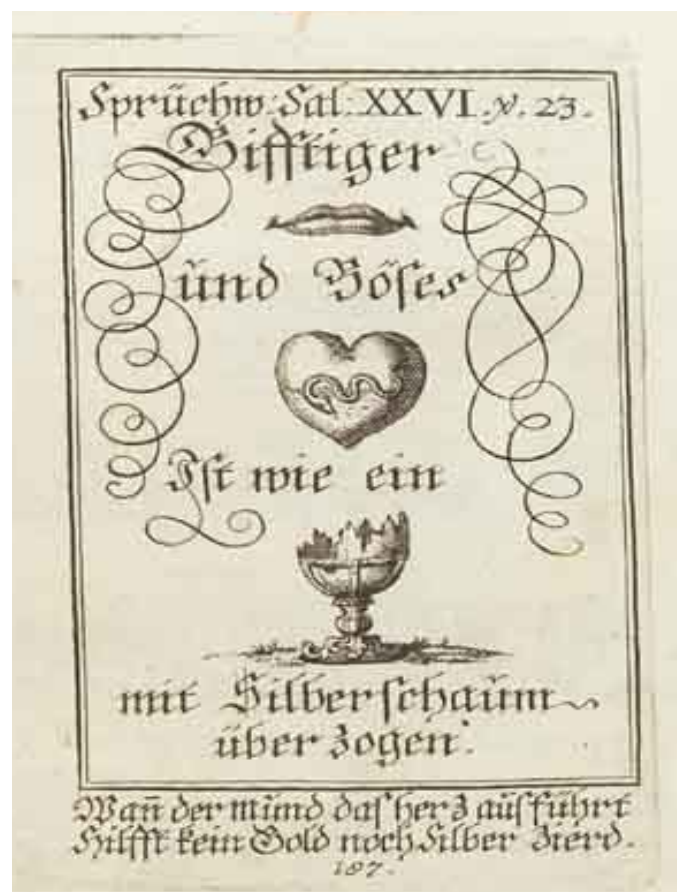 Sprüchw: Sal: XXVI. v. 23.
Gifftiger
und Böses
Ist wie ein
mit Silberschaum
überzogen.
Wañ der mund das herz ausführt
Hilfft kein Gold noch Silber zierd.
187.